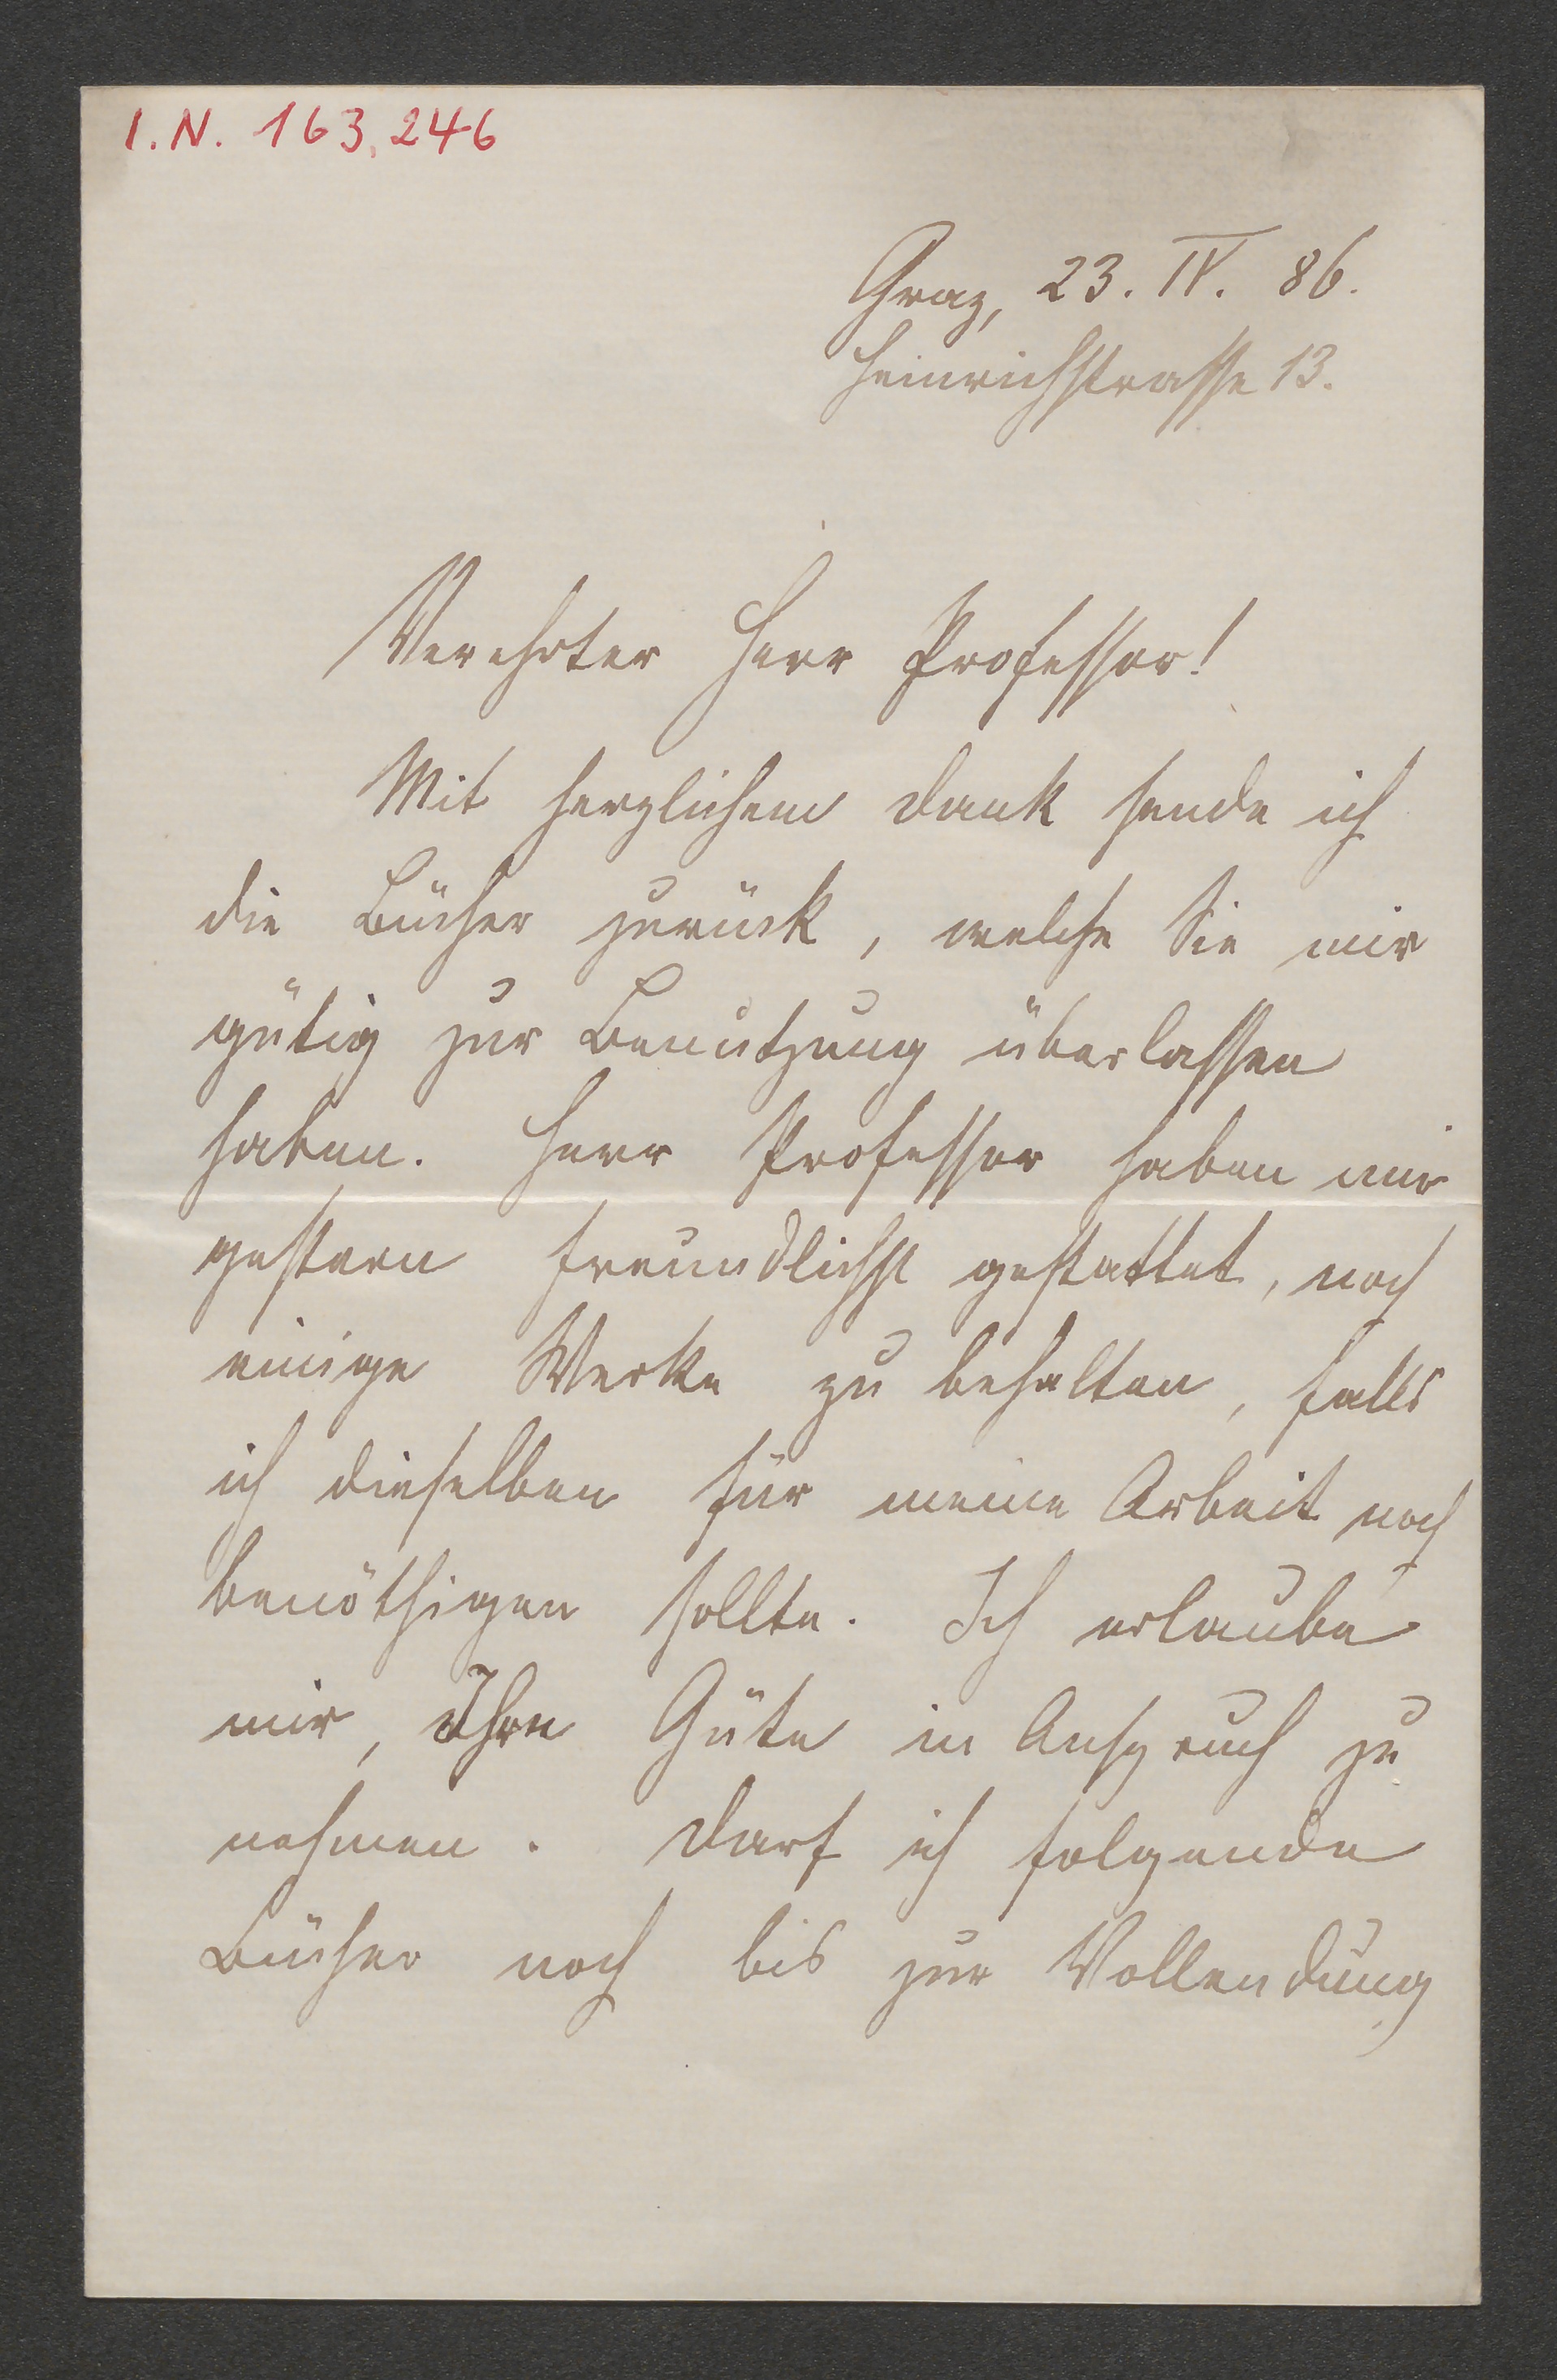 I.N. 163.246
Graz, 23. IV. 86.
Heinrichstrasse 13.
Verehrter Herr Professor!
Mit herzlichem Dank sende ich
die Bücher zurück, welche Sie mir
gütig zur Benützung überlassen
haben. Herr Professor haben mir
gestern freundlichst gestattet, noch
einige Werke zu behalten, falls
ich dieselben für meine Arbeit noch
benöthigen sollte. Ich erlaube
mir, Ihre Güte in Anspruch zu
nehmen. Darf ich folgende
Bücher noch bis zur Vollendung